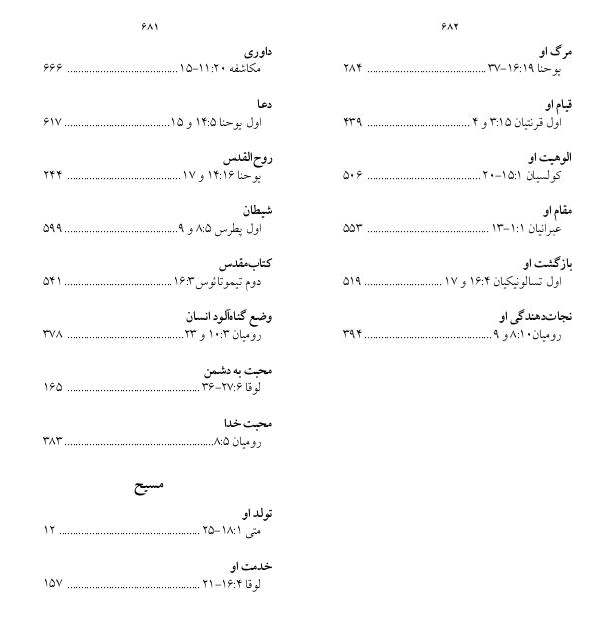 ۶۸۱
داوری
مکاشفه ۲۰:‏۱۱-‏۱۵ ........................................ ۶۶۶
دعا
اول یوحنا ۵:‏۱۴ و ۱۵ ...................................... ۶۱۷
روح‌القدس
یوحنا ۱۶:‏۱۴ و ۱۷ ........................................ ۲۴۴
شیطان
اول پطرس ۵:‏۸ و ۹ ........................................ ۵۹۹
کتاب‌مقدس
دوم تیموتائوس ۳:‏۱۶ ...................................... ۵۴۱
وضع گناه‌آلود انسان
رومیان ۳:‏۱۰ و ۲۳ ......................................... ۳۷۸
محبت به دشمن
لوقا ۶:‏۲۷-‏۳۶ ............................................... ۱۶۵
محبت خدا
رومیان ۵:‏۸ ..................................................... ۳۸۳
مسیح
تولد او
متی ۱:‏۱۸-‏۲۵ .................................................. ۱۲
خدمت او
لوقا ۴:‏۱۶-‏۲۱ ............................................... ۱۵۷
۶۸۲
مرگ او
یوحنا ۱۹:‏۱۶-‏۳۷ .......................................... ۲۸۴
قیام او
اول قرنتیان ۱۵:‏۳ و ۴ .................................... ۴۳۹
الوهیت او
کولسیان ۱:‏۱۵-‏۲۰ ........................................ ۵۰۶
مقام او
عبرانیان ۱:‏۱-‏۱۳ ........................................... ۵۵۳
بازگشت او
اول تسالونیکیان ۴:‏۱۶ و ۱۷ ........................... ۵۱۹
نجات‌دهندگی او
رومیان ۱۰:‏۸ و ۹ ............................................. ۳۹۴